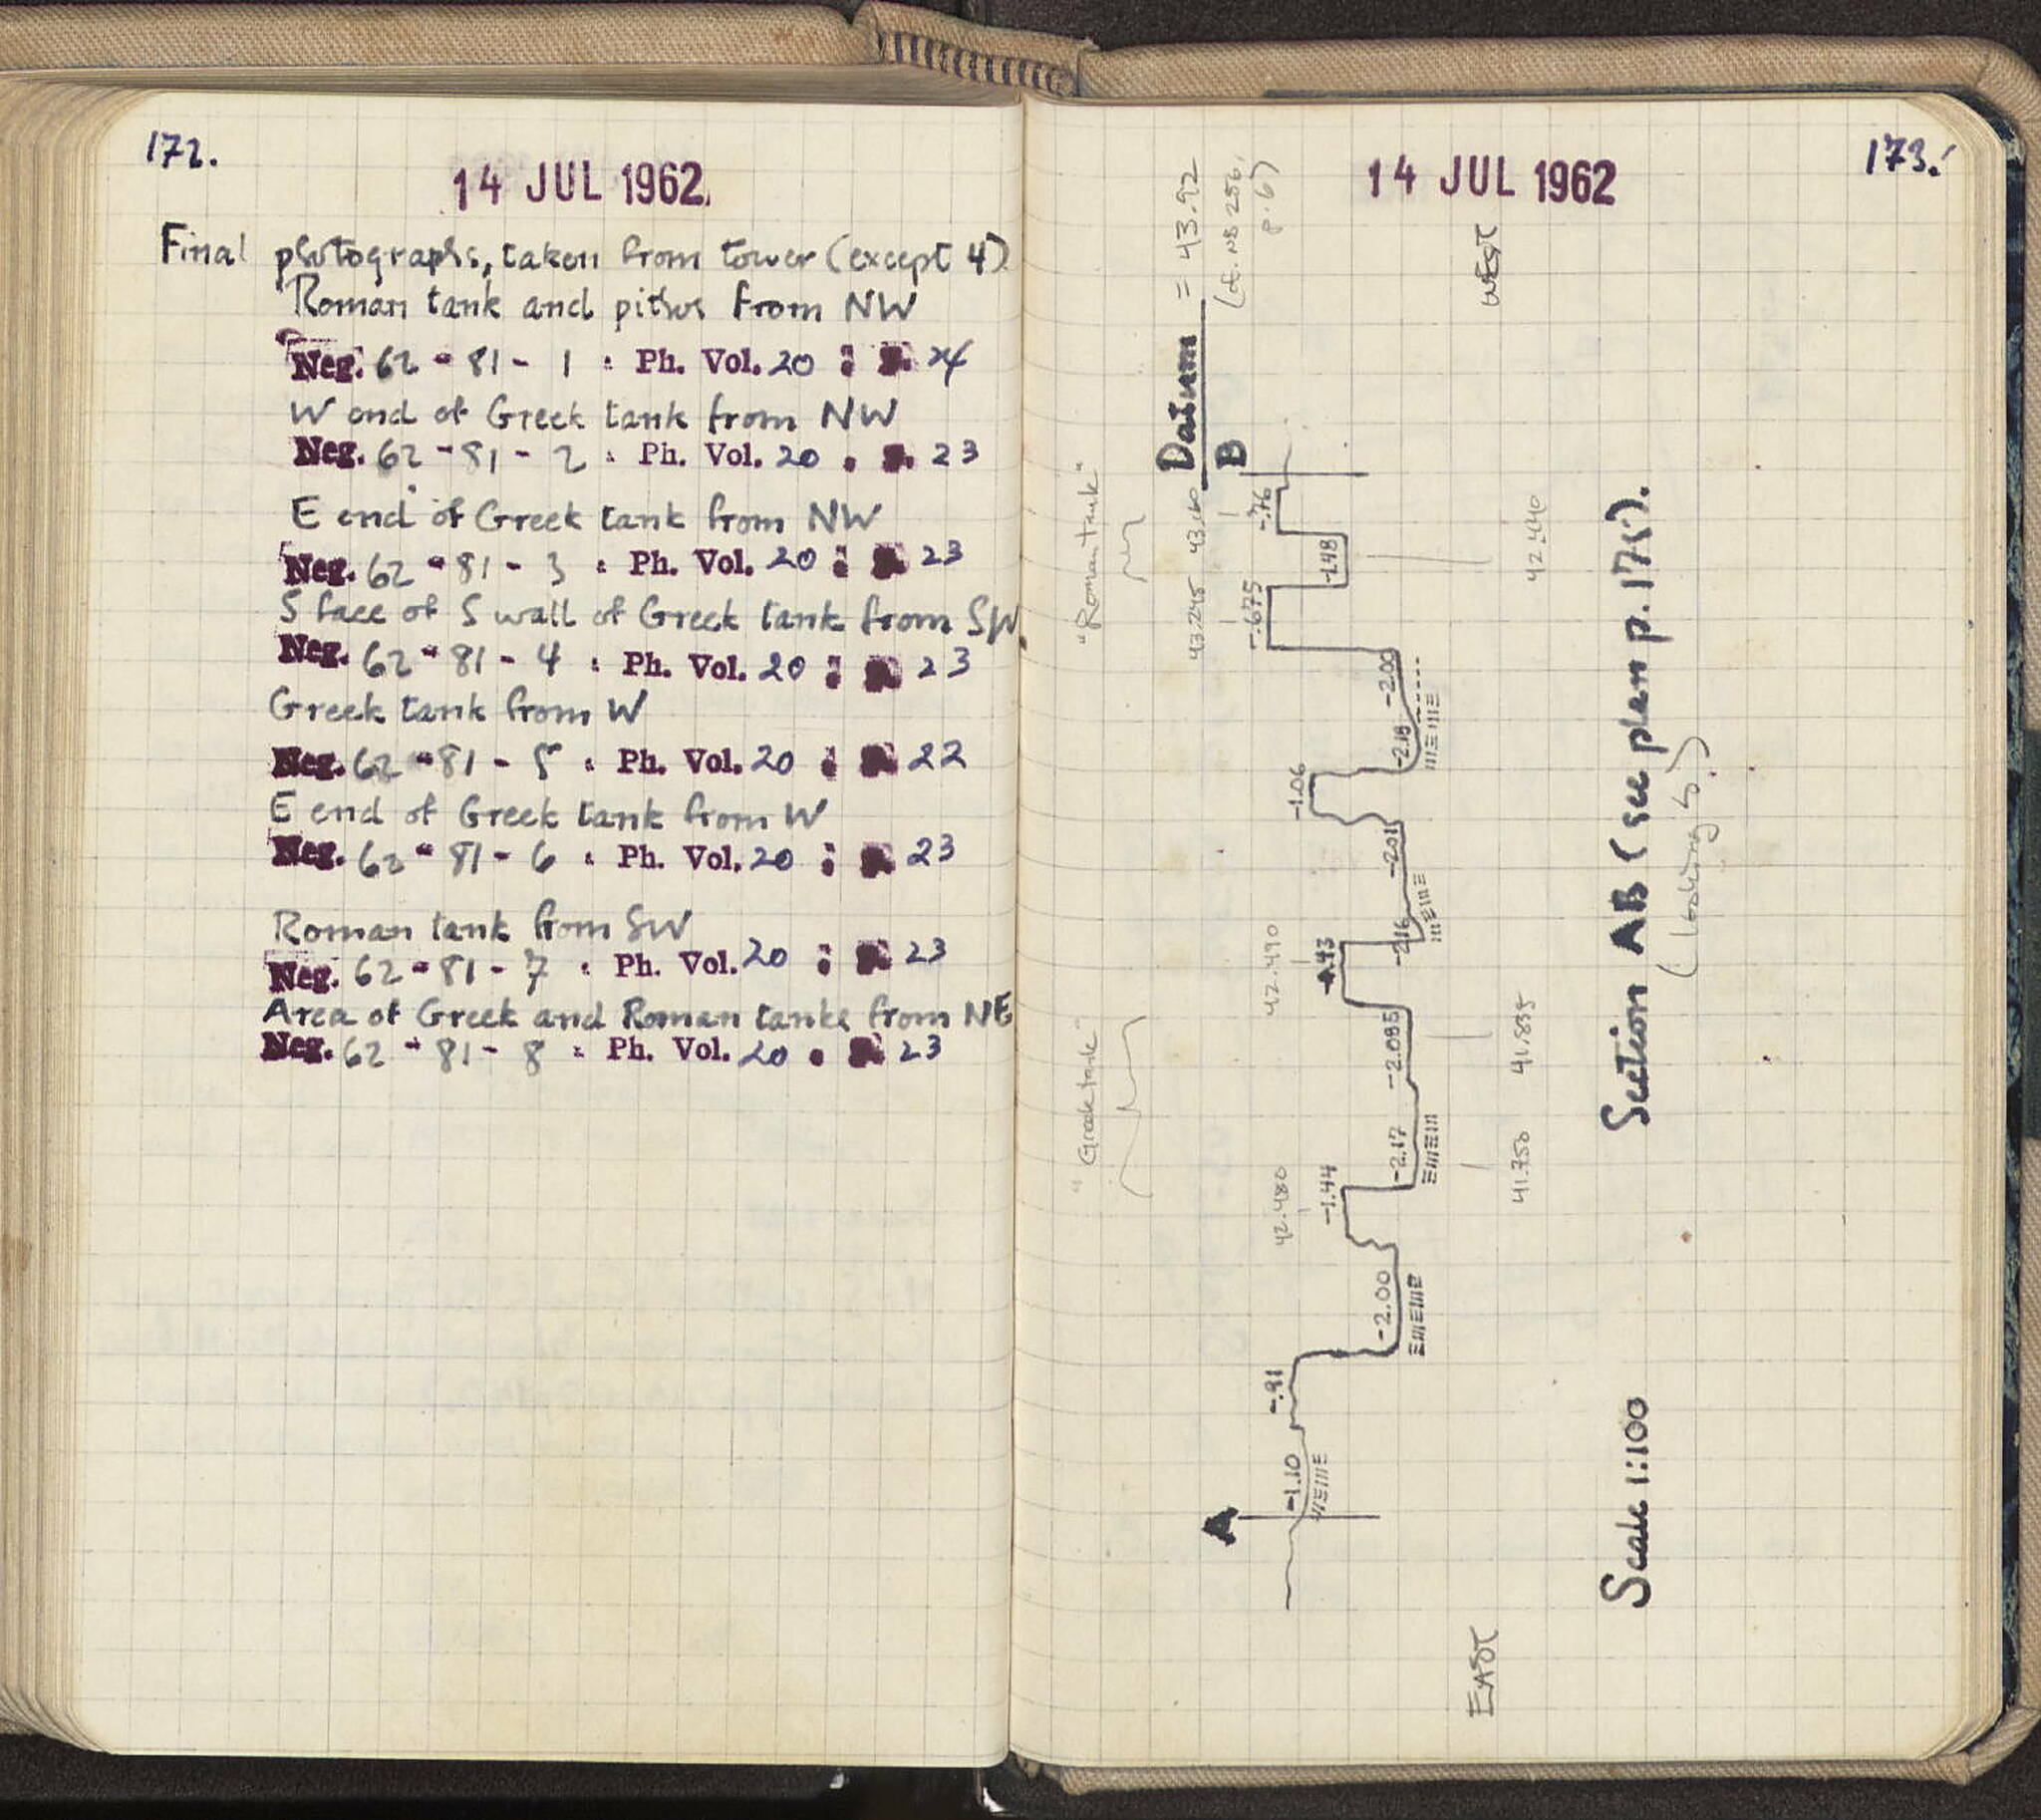 172.
14 JUL 1962
Final photographs, taken from tower (except 4)
Roman tank and pithos from NW
Neg. 62 - 81 - 1 : Ph. Vol. 20 : 24
W end of Greek tank from NW
Neg. 62 - 81 - 2 : Ph. Vol. 20 : 23
E end of Greek tank from NW
Neg. 62 - 81 - 3 : Ph. Vol. 20 : 23
S face of S wall of Greek tank from SW
Neg. 62 - 81 - 4 : Ph. Vol. 20 : 23
Greek tank from W
Neg. 62 - 81 - 5 : Ph. Vol. 20 : 22
E end of Greek tank from W
Neg. 62 - 81 - 6 : Ph. Vol. 20 : 23
Roman tank from SW
Neg. 62 - 81 - 7 : Ph. Vol. 20 : 23
Area of Greek and Roman tanks from NE
Neg. 62 - 81 - 8 : Ph. Vol. 20 : 23
173.
14 JUL 1962
"Greek tank"
"Roman tank"
Datum = 43.92
(cf. NB 256, p. 6)
43.245
43.160
A
B
-1.10
-.91
-2.00
-1.44
42.480
-2.17
-2.085
-1.43
42.490
-2.16
-2.01
-1.06
-2.18
-2.00
-.675
-1.48
-.76
EAST
WEST
41.750
41.835
42.440
Scale 1:100
Section AB (see plan p. 175).
(looking S.)